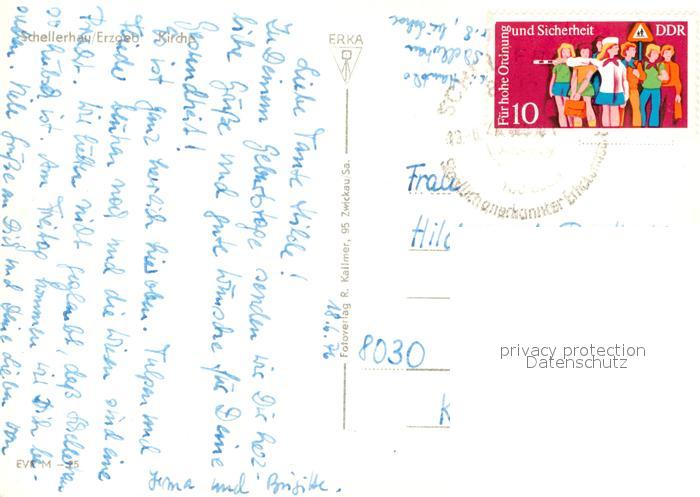 Schellerhau/Erzgeb. Kirche
ERKA
Fotoverlag R. Kallmer, 95 Zwickau Sa.
EVP M -.25
18.6.76
Liebe Tante Hilde!
Zu Deinem Geburtstage senden wir Dir herz-
liche Grüße und gute Wünsche für Deine
Gesundheit!
Es ist ganz herrlich hier oben. Tulpen und
blühen noch und die Wiesen sind eine
Wir hätten nicht geglaubt, daß Schellerhau
so hübsch ist. Am Freitag kommen wir Dich be-
suchen. Viele Grüße an Dich und Deine Lieben von
Irma und Brigitte.
Für hohe Ordnung und Sicherheit
DDR
10
Staatlich anerkannter Erholungsort
Frau
Hil
8030
K
privacy protection
Datenschutz